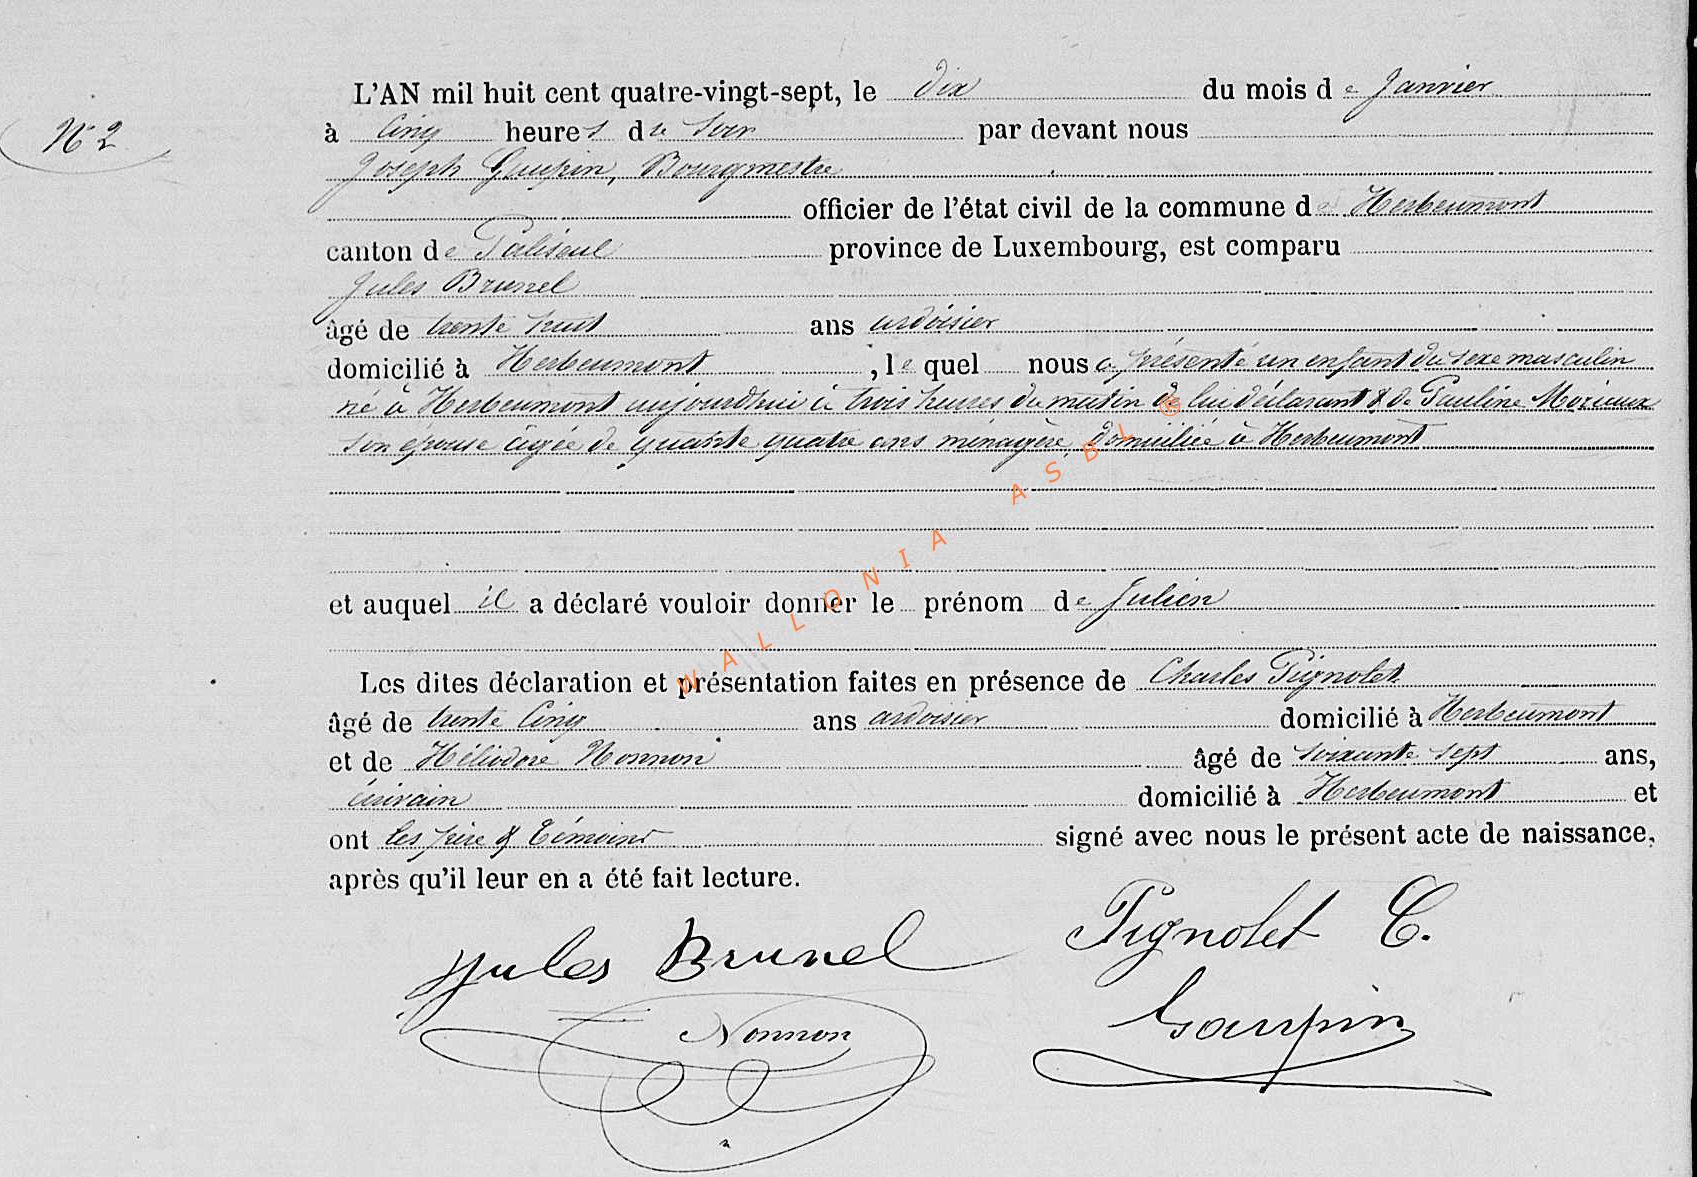 L'AN mil huit cent quatre-vingt-sept, le dix du mois de Janvier
N° 2
à Cinq heures du soir par devant nous
Joseph Gaupin, Bourgmestre
officier de l'état civil de la commune de Herbeumont
canton de Paliseul province de Luxembourg, est comparu
Jules Brunel
âgé de trente huit ans ardoisier
domicilié à Herbeumont, lequel nous a présenté un enfant du sexe masculin
né à Herbeumont aujourdhui à trois heures du matin de lui déclarant & de Pauline
son épouse âgée de quatre ans ménagère, domiciliée à Herbeumont
et auquel il a déclaré vouloir donner le prénom de Julien
Les dites déclaration et présentation faites en présence de Charles Pignolet
âgé de trente Cinq ans ardoisier domicilié à Herbeumont
et de Héliodore Nonnon âgé de soixante sept ans,
écrivain domicilié à Herbeumont et
ont les père & témoins signé avec nous le présent acte de naissance,
après qu'il leur en a été fait lecture.
Jules Brunel
Pignolet C.
Nonnon
Gaupin
WALLONIA ASBL ®